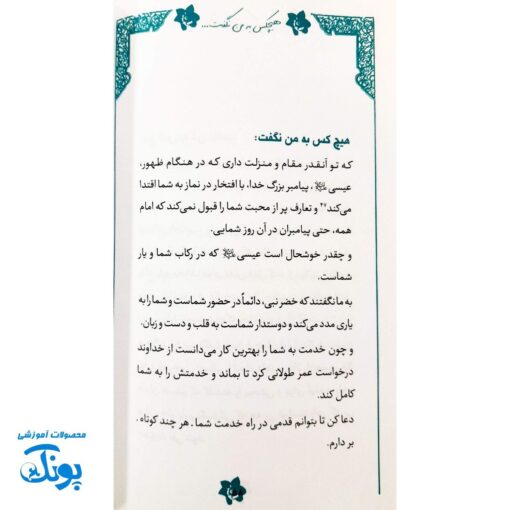 هیچکس به من نگفت...
هیچ کس به من نگفت:
که تو آنقدر مقام و منزلت داری که در هنگام ظهور،
عیسی ﷺ، پیامبر بزرگ خدا، با افتخار در نماز به شما اقتدا
می‌کند۴۷ و تعارف پر از محبت شما را قبول نمی‌کند که امام
همه، حتی پیامبران در آن روز شمایی.
و چقدر خوشحال است عیسی ﷺ که در رکاب شما و یار
شماست.
به ما نگفتند که خضر نبی، دائماً در حضور شماست و شما را به
یاری مدد می‌کند و دوستدار شماست به قلب و دست و زبان.
و چون خدمت به شما را بهترین کار می‌دانست از خداوند
درخواست عمر طولانی کرد تا بماند و خدمتش را به شما
کامل کند.
دعا کن تا بتوانم قدمی در راه خدمت شما ـ هر چند کوتاه ـ
بر دارم.
محصولات آموزشی
پونک